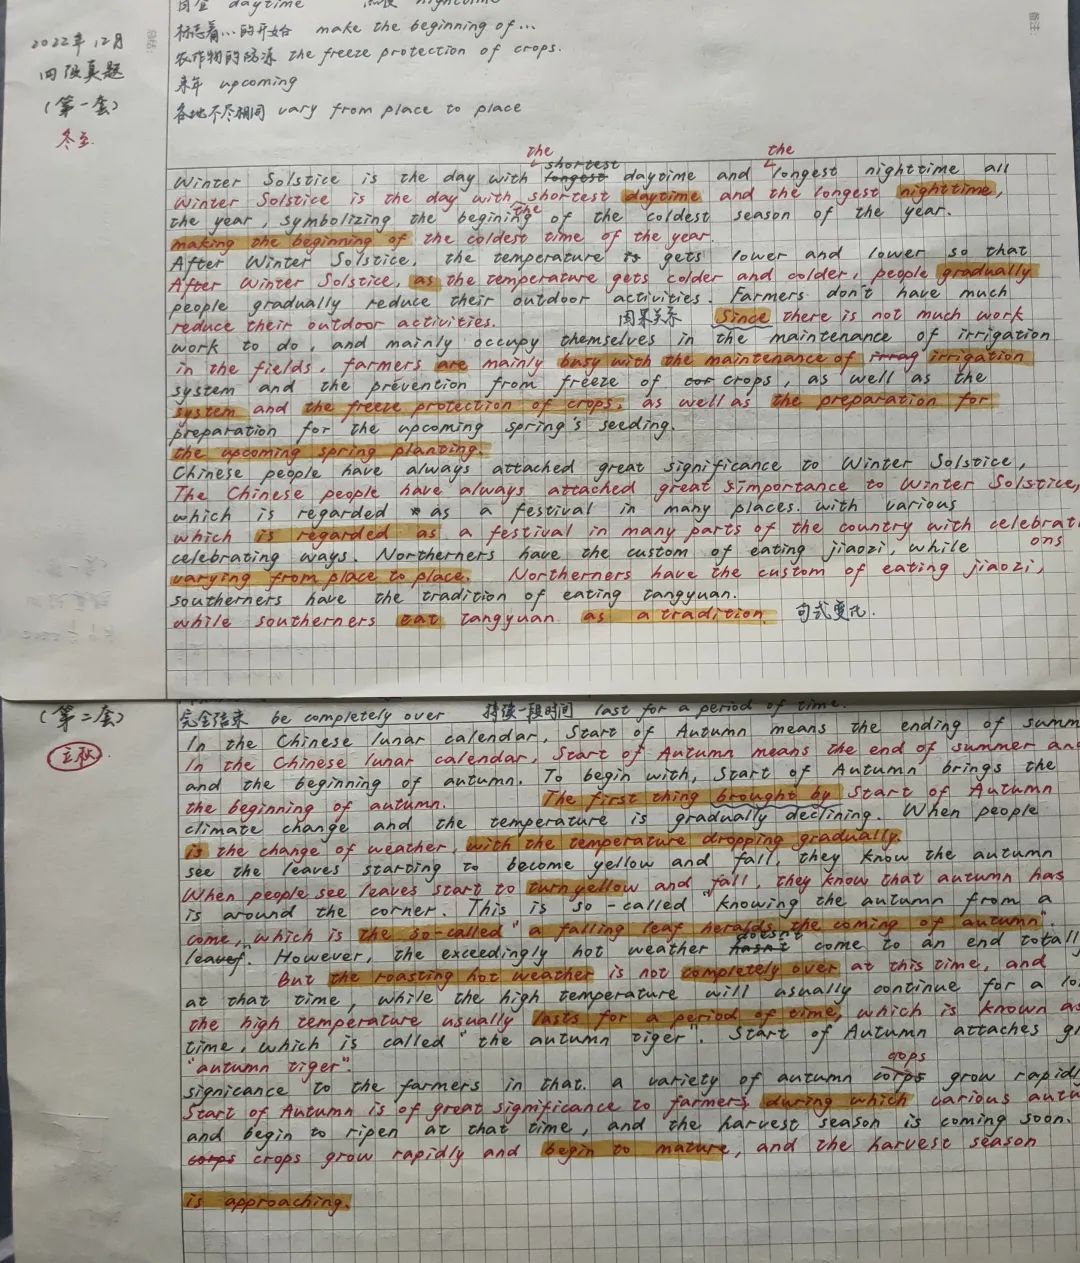 daytime nighttime
标志着…的开始 make the beginning of...
农作物的防冻 the freeze protection of crops.
来年 upcoming
各地不尽相同 vary from place to place
2022年12月
四级真题
(第一套)
冬至
备注:
the the
shortest
Winter Solstice is the day with longest daytime and longest nighttime all
Winter Solstice is the day with shortest daytime and the longest nighttime,
the
the year, symbolizing the begining of the coldest season of the year.
making the beginning of the coldest time of the year.
After Winter Solstice, the temperature is gets lower and lower so that
After Winter Solstice, as the temperature gets colder and colder, people gradually
people gradually reduce their outdoor activities. Farmers don't have much
reduce their outdoor activities. 因果关系 Since there is not much work
work to do, and mainly occupy themselves in the maintenance of irrigation
in the fields, farmers are mainly busy with the maintenance of irrag irrigation
system and the prevention from freeze of cor crops, as well as the
system and the freeze protection of crops, as well as the preparation for
preparation for the upcoming spring's seeding.
the upcoming spring planting.
Chinese people have always attached great significance to Winter Solstice,
The Chinese people have always attached great simportance to Winter Solstice,
which is regarded as a festival in many places. with various
which is regarded as a festival in many parts of the country with celebrati
ons
celebrating ways. Northerners have the custom of eating jiaozi, while
varying from place to place. Northerners have the custom of eating jiaozi,
southerners have the tradition of eating tangyuan.
while southerners eat tangyuan as a tradition. 句式变化.
(第二套)
立秋
完全结束 be completely over 持续一段时间 last for a period of time.
In the Chinese lunar calendar, Start of Autumn means the ending of summ
In the Chinese lunar calendar, Start of Autumn means the end of summer an
and the beginning of autumn. To begin with, Start of Autumn brings the
the beginning of autumn. The first thing brought by Start of Autumn
climate change and the temperature is gradually declining. When people
is the change of weather, with the temperature dropping gradually.
see the leaves starting to become yellow and fall, they know the autumn
When people see leaves start to turn yellow and fall, they know that autumn has
is around the corner. This is so-called "knowing the autumn from a
come, which is the so-called "a falling leaf heralds the coming of autumn".
doesn't
leaf". However, the exceedingly hot weather hasn't come to an end totall
But the roasting hot weather is not completely over at this time, and
at that time, while the high temperature will usually continue for a lo
the high temperature usually lasts for a period of time, which is known as
time, which is called "the autumn tiger". Start of Autumn attaches gr
"autumn tiger".
crops
signicance to the farmers in that. a variety of autumn corps grow rapidl
Start of Autumn is of great significance to farmers, during which various autu
and begin to ripen at that time, and the harvest season is coming soon.
corps crops grow rapidly and begin to mature, and the harvest season
is approaching.